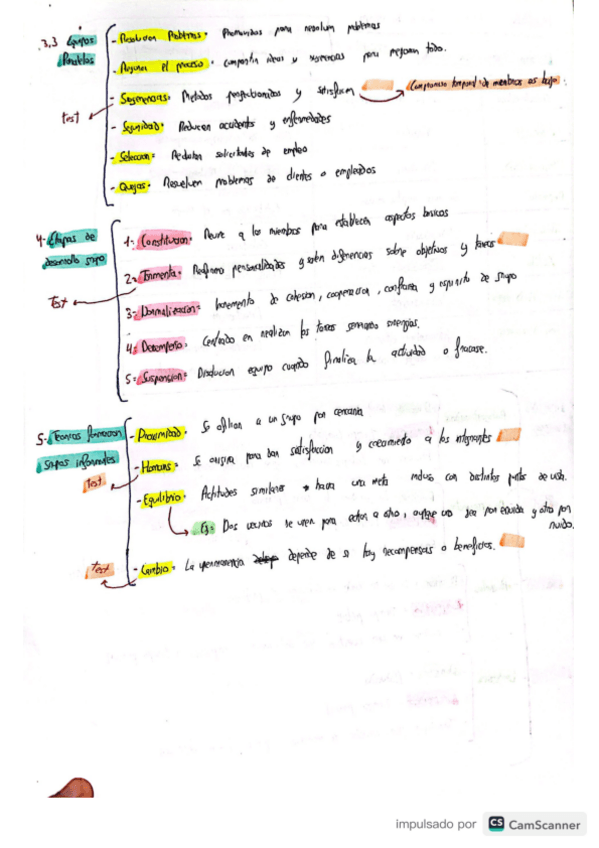 3.3 Equipos Paralelos
- Resolucion Problemas: Promovidos para resolver problemas
- Mejorar el proceso: comparten ideas y sugerencias para mejorar todo.
- Sugerencias: Metodos perfeccionados y satisfacer → Compromiso temporal de miembros es bajo
test
- Seguridad: Reducen accidentes y enfermedades
- Seleccion: solicitudes de empleo
- Quejas: Resuelven problemas de clientes o empleados
4- Etapas de desarrollo grupo
1= Constitucion: Reune a los miembros para establecer aspectos basicos
2= Tormenta: personalidades y diferencias sobre objetivos y tareas
Test
3= Normalizacion= Incremento de cohesion, cooperacion, confianza y espiritu de grupo
4= Desempeño: Centrado en realizar las tareas energias.
5= Suspension= Disolucion equipo cuando finaliza la actividad o fracase.
5- Teorias formacion grupos informales
- Proximidad: Se afilian a un grupo por cercania
- Homans: Se origina para dar satisfaccion y crecimiento a los integrantes
test
- Equilibrio: Actitudes similares → hacia una meta incluso con distintos puntos de vista.
Ej: Dos vecinos se unen para echar a otro, aunque uno sea por envidia y otro por ruido.
- Cambio= La permanencia depende de si hay recompensas o beneficios.
test
impulsado por CS CamScanner